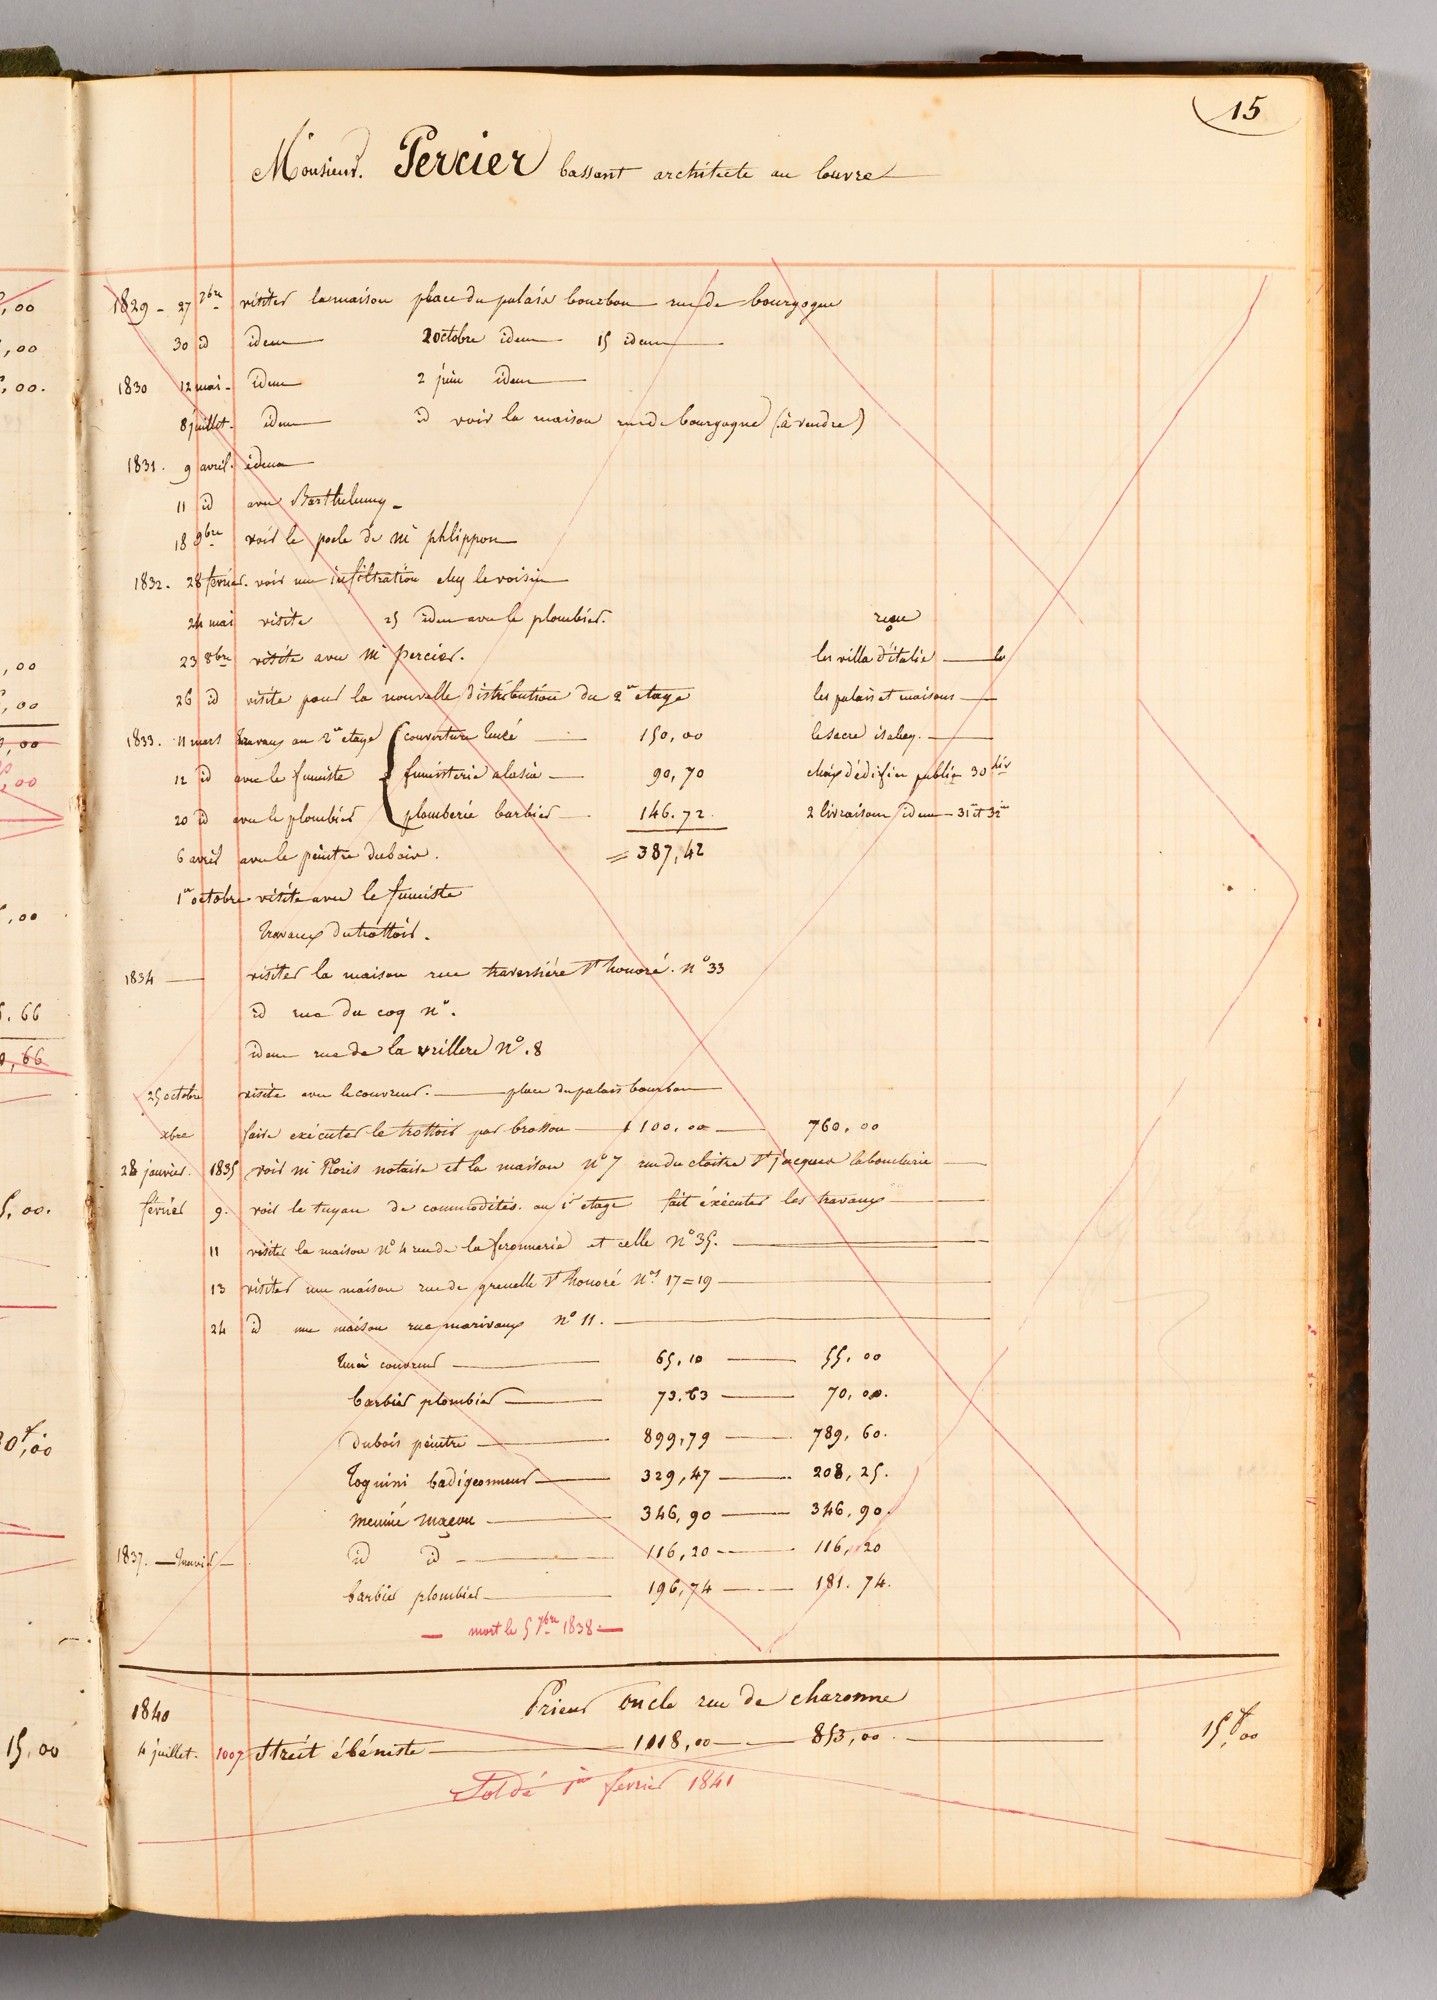 15
Monsieur. Percier bassant architecte au louvre
1829 - 27 7bre visiter la maison place du palais bourbon rue de bourgogne
30 id idem 2 octobre idem 15 idem
1830 12 mai - idem 2 juin idem
8 juillet. idem id voir la maison rue de bourgogne (à vendre)
1831. 9 avril. idem
11 id avec Barthelemy -
18 9bre voir le poele de Mr phlippon
1832. 28 fevrier. voir une infiltration chez le voisin
24 mai visite 25 idem avec le plombier. reçu
23 8bre visite avec Mr percier. les villa d'italie
26 id visite pour la nouvelle distribution du 2e etage les palais et maisons
1833. 11 mars travaux au 2e etage couverture 150,00 le sacre isabey.
12 id avec le fumiste fumisterie alasia 90,70 choix d'édifice public 30 liv
20 id avec le plombier plomberie barbier 146.72 2 livraison idem - 31e et 32e
6 avril avec le peintre dubois. = 387,42
1er octobre visite avec le fumiste
travaux du trottoir.
1834 visiter la maison rue traversière St honoré. n° 33
id rue du coq n°.
idem rue de la vrillere N°. 8
25 octobre visite avec le couvreur. place du palais bourbon
xbre faire exécuter le trottoir par brosson 1100,00 760,00
28 janvier. 1835 voir Mr notaire et la maison n° 7 rue du cloitre St jacques la boucherie
février 9. voir le tuyau de commodités. au 1er etage fait éxécuter les travaux
11 visiter la maison N° 4 rue de la feronnerie et celle N° 35.
13 visiter une maison rue de grenelle St honoré Nos 17=19
24 id une maison rue marivaux N° 11.
couvreur 65,10 55,00
barbier plombier 73.63 70,00.
dubois peintre 899,79 789,60.
Toguini badigeonneur 329,47 208,25.
maçon 346,90 346,90.
1837. id id 116,20 116,20
barbier plombier 196,74 181.74.
- mort le 5 7bre 1838 -
Prieur oncle rue de charonne
1840
4 juillet. 1007 Streit ébéniste 1118,00 853,00 15f,00
Soldé 1er fevrier 1841